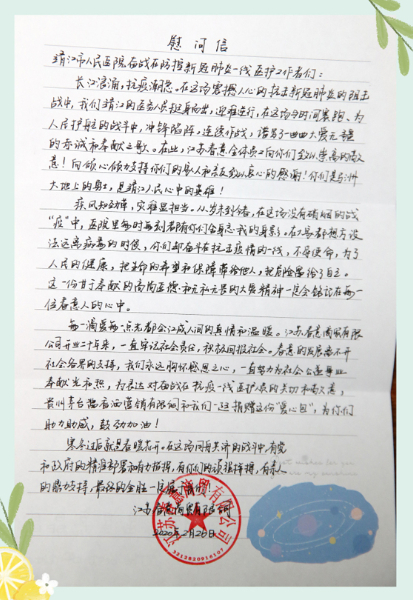 慰问信
靖江市人民医院奋战在防控新冠肺炎一线医护工作者们：
长江浪涌，抗疫潮急。在这场震撼人心的抗击新冠肺炎的阻击
战中，我们靖江的医务人员挺身而出，迎难逆行，在这场与时间赛跑、为
人民护航的战斗中，冲锋陷阵，连续作战，谱写一曲曲大爱无疆
的赤诚和奉献之歌。在此，江苏春意全体员工向你们致以崇高的敬
意！向倾心倾力支持你们的家人和亲友致以衷心的感谢！你们是
大地上的，是靖江人民心中的英雄！
疾风知劲草，灾难显担当。从岁末到春，在这场没有硝烟的战
“疫”中，医院里每时每刻都有你们舍身忘我的身影。在大家都想方设
法远离病毒的时候，你们却奋斗在抗击疫情的一线，不辱使命，为了
人民的健康，把生命的希望和保障带给他人，把危险留给自己。
这一份甘于奉献的高尚医德和无私无畏的大爱精神一定会铭记在每一
位春意人的心中。
每一滴爱每一点光都会汇成人间的真情和温暖。江苏春意商贸有限
公司开业二十年来，一直牢记社会责任，积极回报社会。春意的发展离不开
社会各界的支持，我们永远胸怀感恩之心，一直努力为社会公益事业
奉献光和热，为表达对奋战在抗疫一线医护人员的关切和敬意，
贵州茅台酱香酒营销有限公司和我们一道捐赠这份“爱心包”，为你们
助力助威，鼓劲加油！
寒冬过后就是春暖花开。在这场同舟共济的战斗中，有党
和政府的精准部署和有力指挥，有你们的顽强拼搏，有亲人
的鼎力支持，最后的全胜一定属于我们！
江苏春意商贸有限公司
2020年2月26日